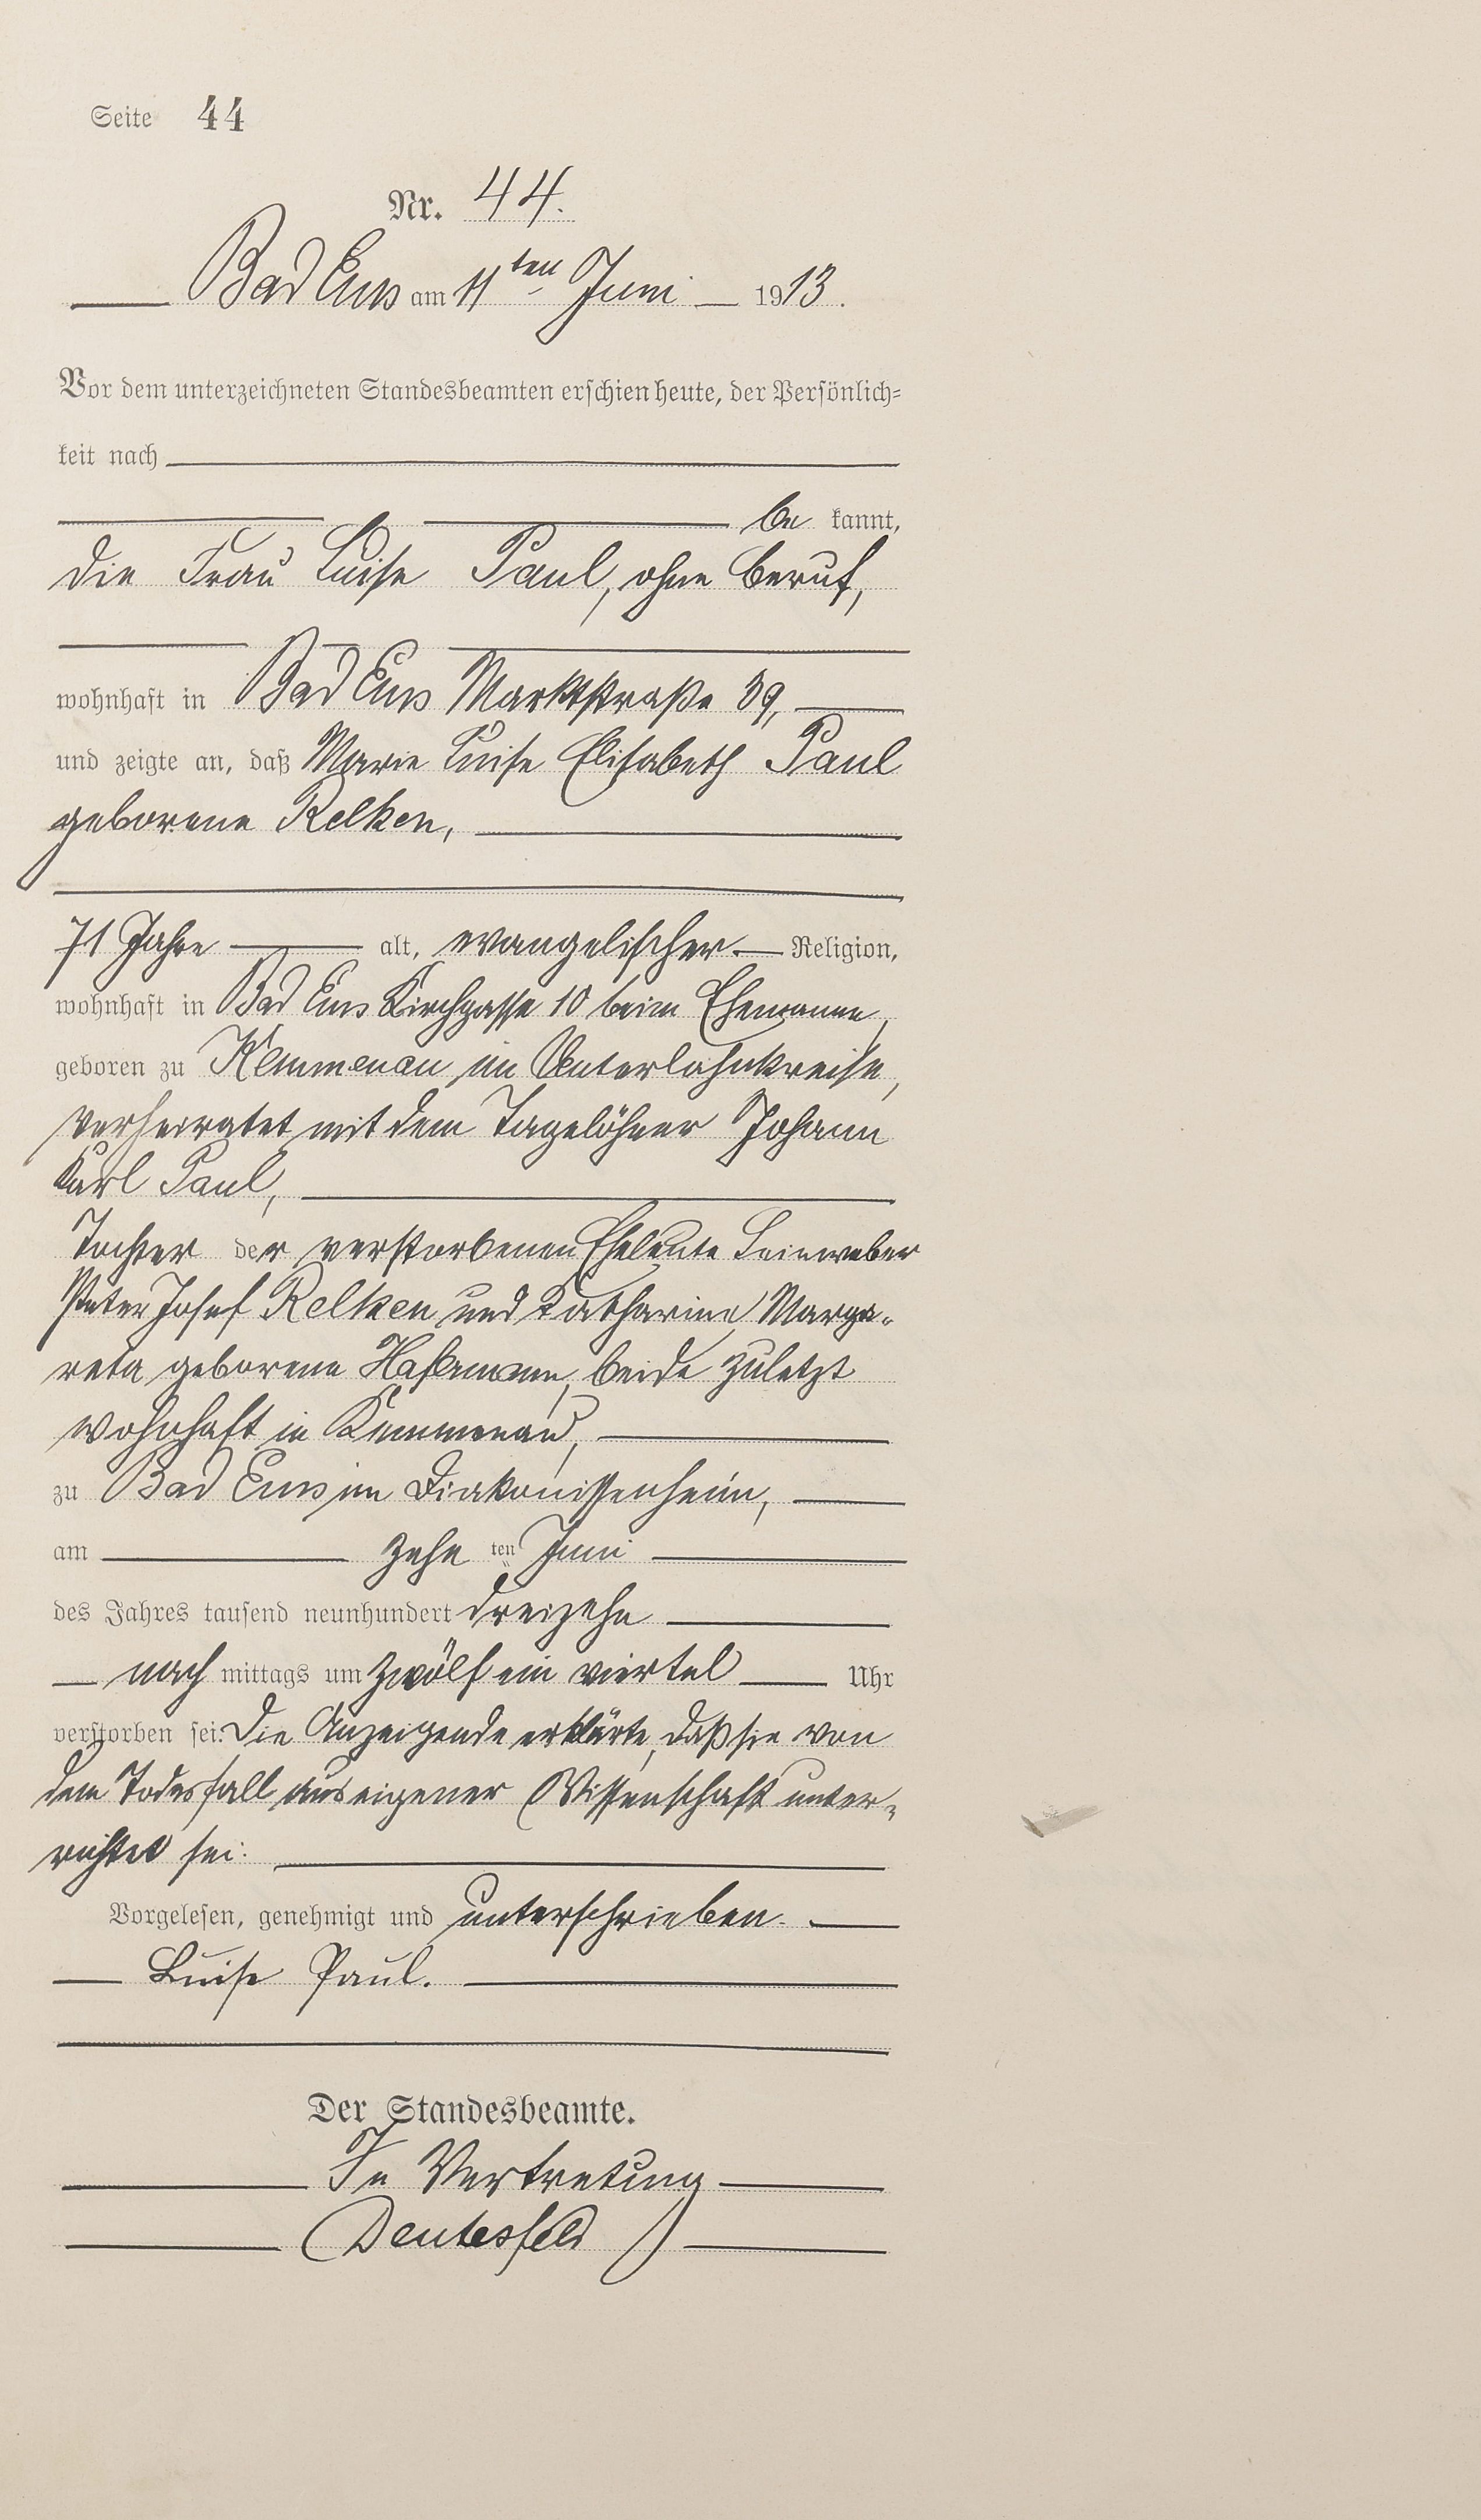 Seite 44
Nr. 44.
Bad Ems am 11ten Juni 1913.
Vor dem unterzeichneten Standesbeamten erschien heute, der Persönlich=
keit nach
be kannt,
die Frau Luise Paul, ohne Beruf,
wohnhaft in Bad Ems Marktstraße 39,
und zeigte an, daß Marie Luise Elisabeth Paul
geborene Relken,
71 Jahre alt, evangelischer Religion,
wohnhaft in Bad Ems Kirchgasse 10 beim Ehemanne,
geboren zu Kemmenau im Unterlahnkreise,
verheiratet mit dem Tagelöhner Johann
Karl Paul,
Tochter der verstorbenen Eheleute Leinweber
Peter Josef Relken und Katharine Marga-
reta geborene beide zuletzt
wohnhaft in Kemmenau,
zu Bad Ems im Diakonissenheim,
am zehn ten Juni
des Jahres tausend neunhundert dreizehn
nach mittags um zwölf ein viertel Uhr
verstorben sei. Die Anzeigende erklärte, daß sie von
dem Todesfall aus eigener Wissenschaft unter-
richtet sei.
Vorgelesen, genehmigt und unterschrieben.
Luise Paul.
Der Standesbeamte.
In Vertretung
Deutesfeld